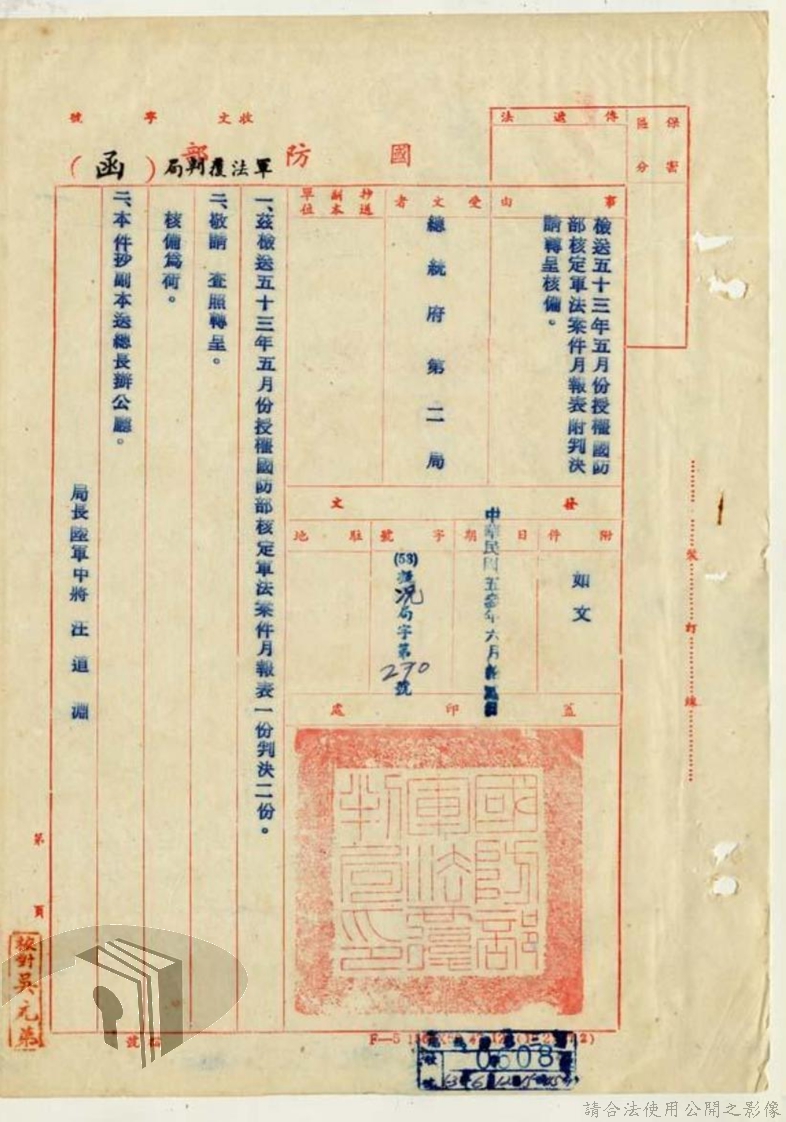 收文 字 號
國防部軍法覆判局(函)
保密區分
傳遞法
事由
檢送五十三年五月份授權國防
部核定軍法案件月報表附判決
請轉呈核備。
受文者
總統府第二局
抄送副本單位
發文
附件
如文
日期
中華民國五參年六月
字號
(53)
局字第
290
號
駐地
監印處
國防部軍法覆判局印
一、茲檢送五十三年五月份授權國防部核定軍法案件月報表一份判決二份。
二、敬請 查照轉呈。
核備為荷。
三、本件抄副本送總長辦公廳。
局長陸軍中將汪道淵
裝訂線
第 頁
校對吳元第
0508
請合法使用公開之影像